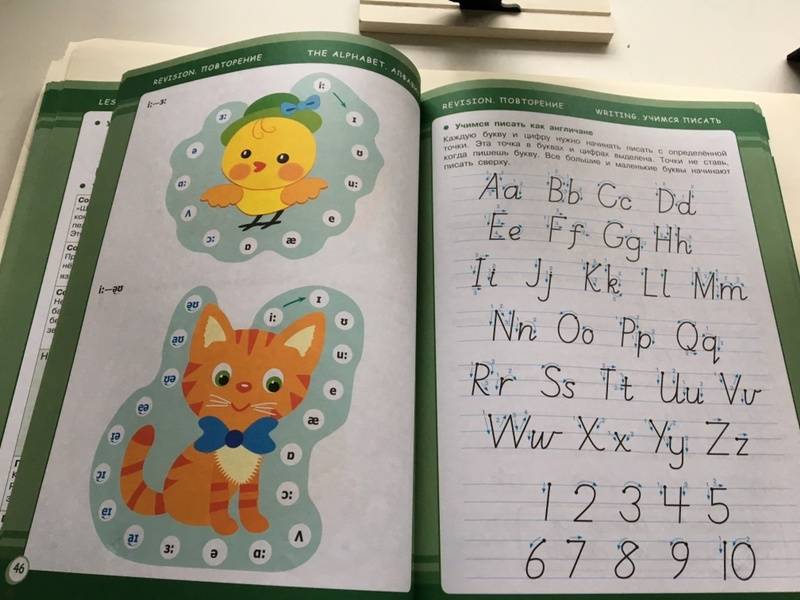 REVISION. ПОВТОРЕНИЕ THE ALPHABET.
i:—ɜ:
i:
ɪ
ʊ
u:
e
æ
ɒ
ɔ:
ʌ
ɑ:
ə
ɜ:
i:—əʊ
i:
ɪ
ʊ
u:
e
æ
ɒ
ɔ:
ʌ
ɑ:
ə
ɜ:
aɪ
eɪ
ɔɪ
ɪə
eə
ʊə
aʊ
əʊ
46
REVISION. ПОВТОРЕНИЕ WRITING. УЧИМСЯ ПИСАТЬ
Учимся писать как англичане
Каждую букву и цифру нужно начинать писать с определённой
точки. Эта точка в буквах и цифрах выделена. Точки не ставь,
когда пишешь букву. Все большие и маленькие буквы начинают
писать сверху.
Aa Bb Cc Dd
Ee Ff Gg Hh
Ii Jj Kk Ll Mm
Nn Oo Pp Qq
Rr Ss Tt Uu Vv
Ww Xx Yy Zz
1 2 3 4 5
6 7 8 9 10